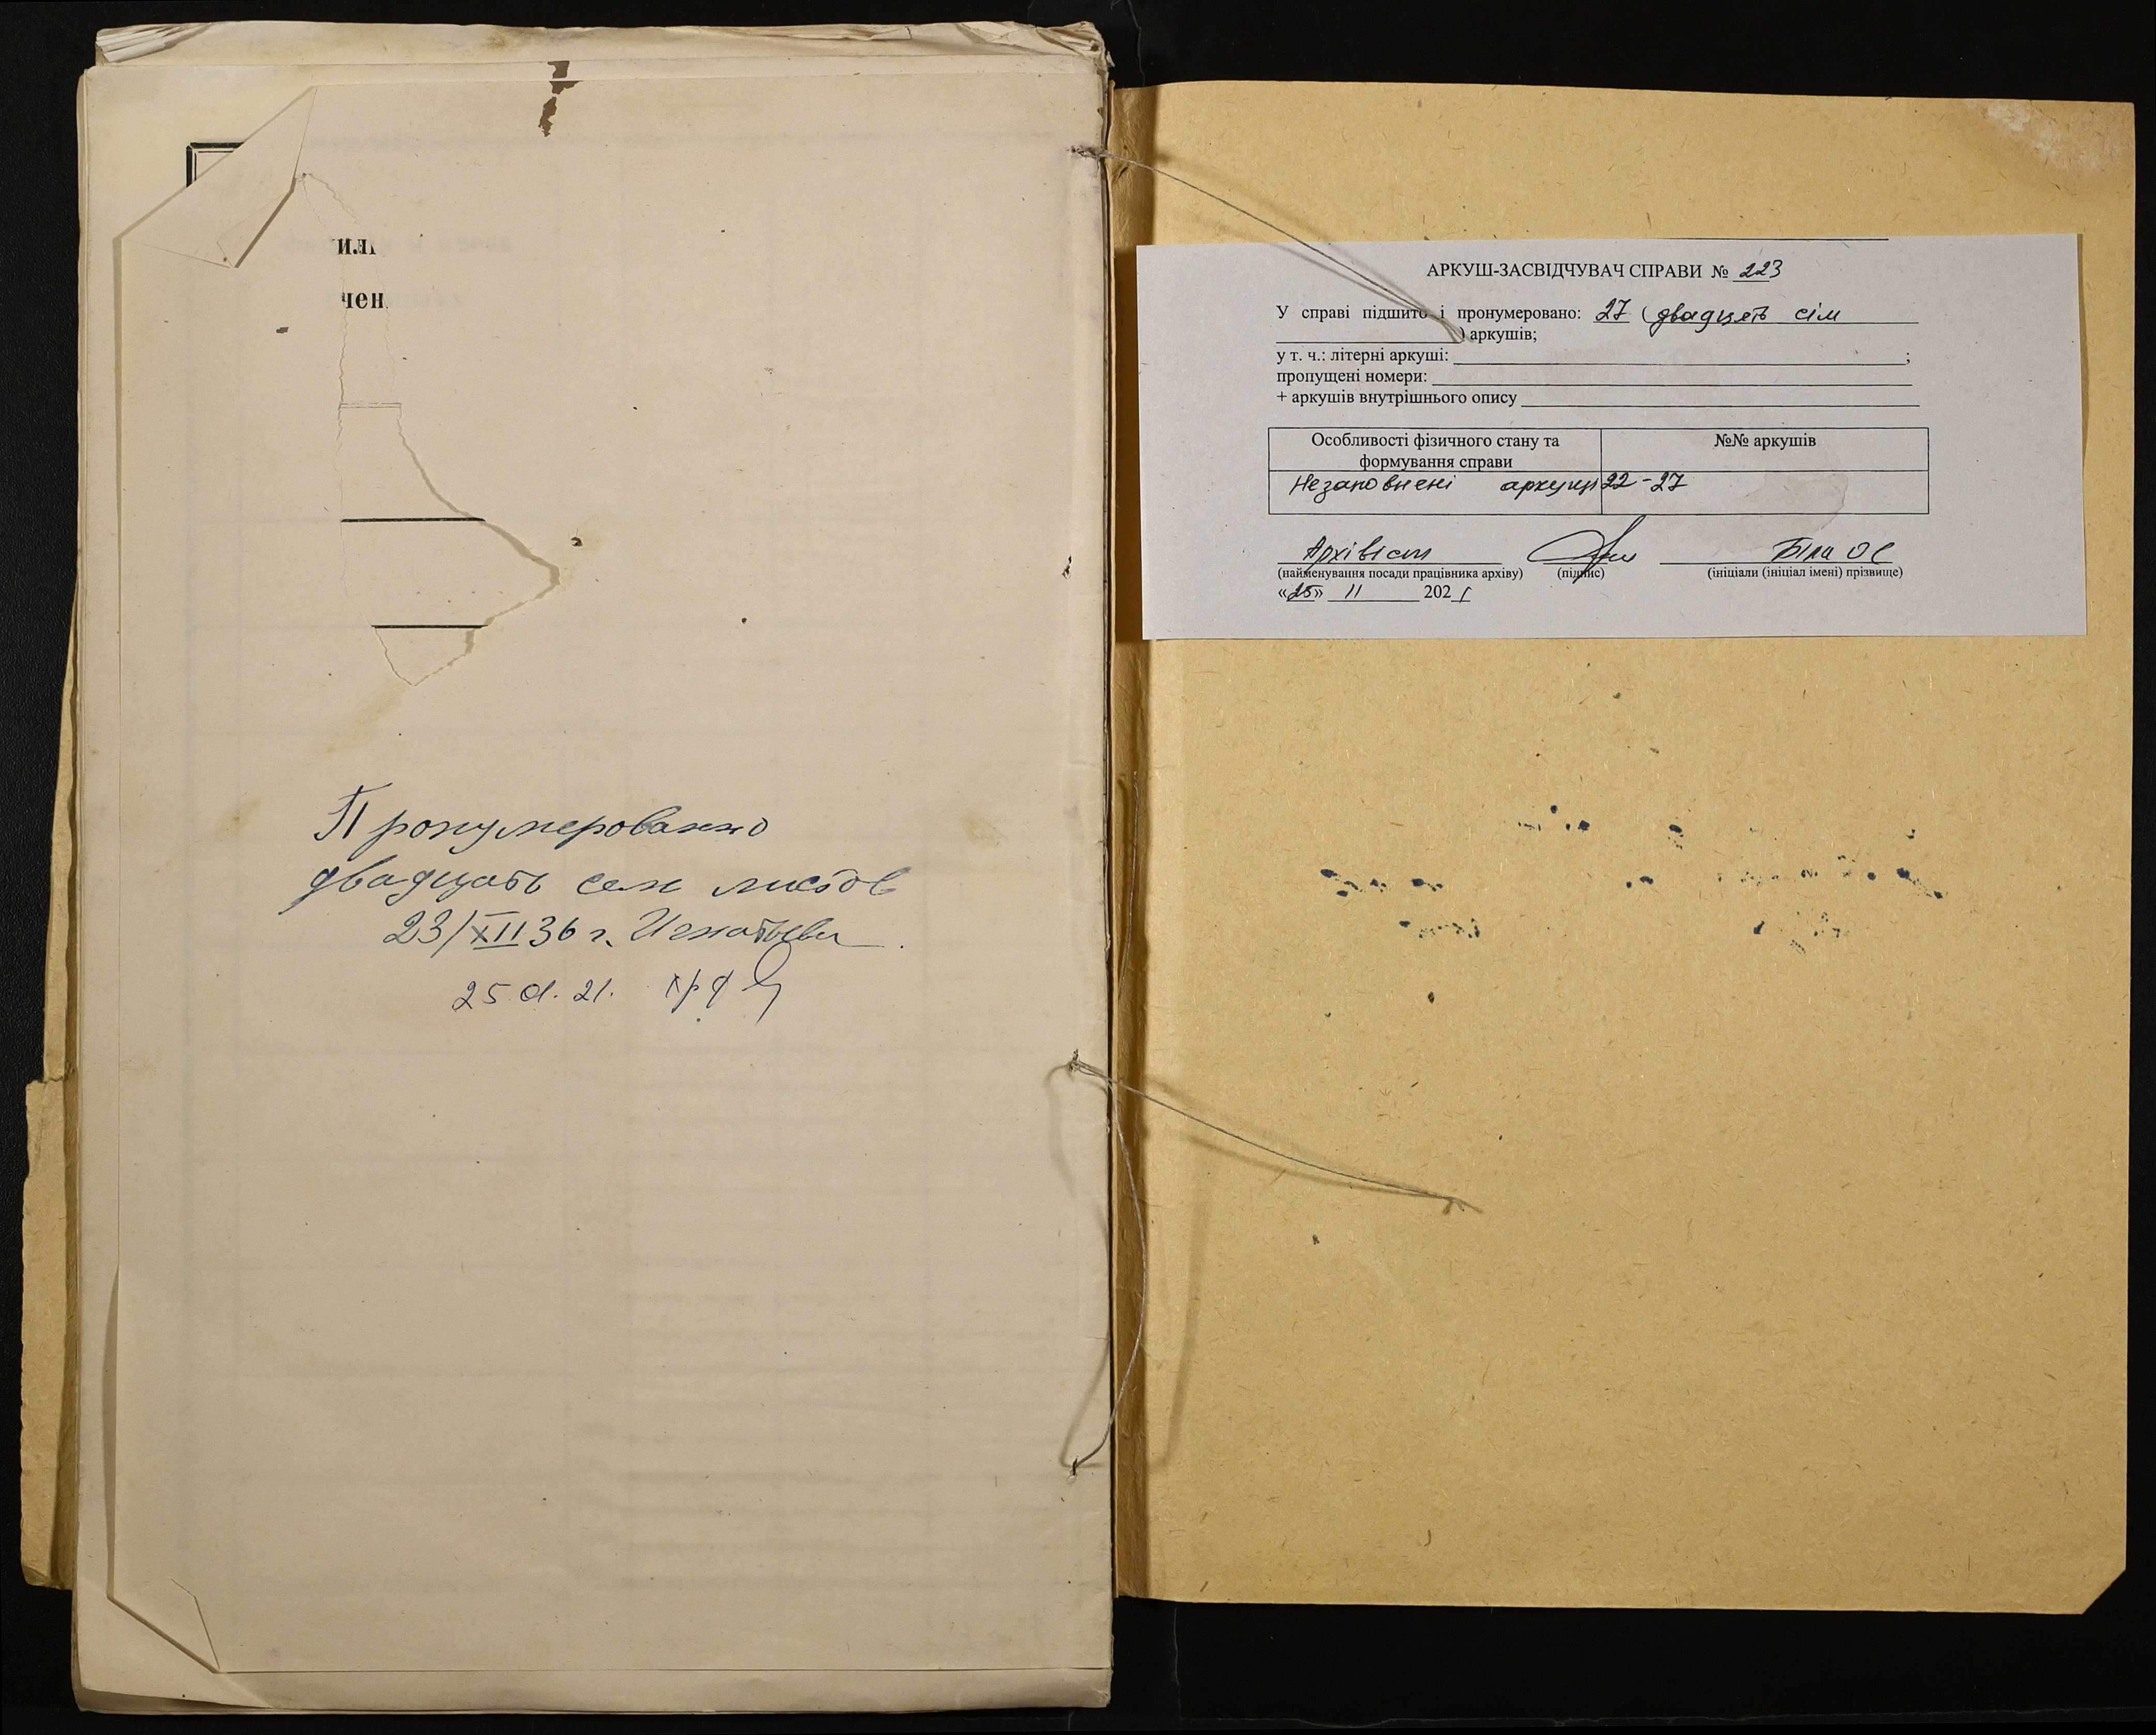 или
чен
Пронумерованно
двадцать семь листов
23/XII 36 г. Игнатьева
25.
21.
АРКУШ-ЗАСВІДЧУВАЧ СПРАВИ № 223
У справі підшито і пронумеровано: 27 (двадцять сім
) аркушів;
у т. ч.: літерні аркуші: ;
пропущені номери:
+ аркушів внутрішнього опису
Особливості фізичного стану та формування справи
№№ аркушів
Незаповнені аркуші 22-27
Архівіст Біла ОС
(найменування посади працівника архіву) (підпис) (ініціали (ініціал імені) прізвище)
«25» 11 2021